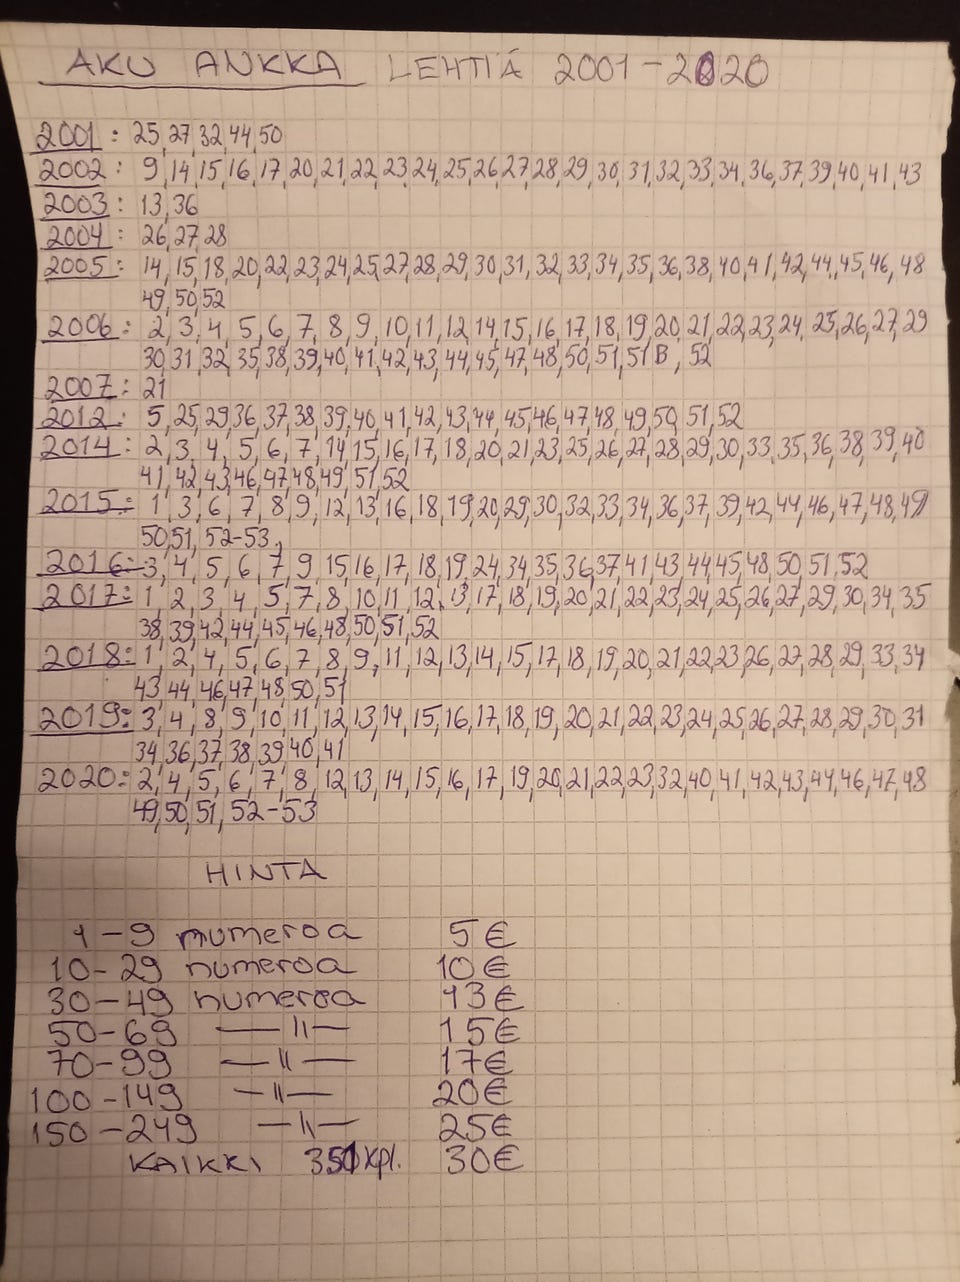 AKU ANKKA LEHTIÄ 2001-2020
2001: 25,27,32,44,50
2002: 9,14,15,16,17,20,21,22,23,24,25,26,27,28,29,30,31,32,33,34,36,37,39,40,41,43
2003: 13,36
2004: 26,27,28
2005: 14,15,18,20,22,23,24,25,27,28,29,30,31,32,33,34,35,36,38,40,41,42,44,45,46,48
49,50,52
2006: 2,3,4,5,6,7,8,9,10,11,12,14,15,16,17,18,19,20,21,22,23,24,25,26,27,29
30,31,32,35,38,39,40,41,42,43,44,45,47,48,50,51,51B,52
2007: 21
2012: 5,25,29,36,37,38,39,40,41,42,43,44,45,46,47,48,49,50,51,52
2014: 2,3,4,5,6,7,14,15,16,17,18,20,21,23,25,26,27,28,29,30,33,35,36,38,39,40
41,42,43,46,47,48,49,51,52
2015: 1,3,6,7,8,9,12,13,16,18,19,20,29,30,32,33,34,36,37,39,42,44,46,47,48,49
50,51,52-53,
2016: 3,4,5,6,7,9,15,16,17,18,19,24,34,35,36,37,41,43,44,45,48,50,51,52
2017: 1,2,3,4,5,7,8,10,11,12,13,17,18,19,20,21,22,23,24,25,26,27,29,30,34,35
38,39,42,44,45,46,48,50,51,52
2018: 1,2,4,5,6,7,8,9,11,12,13,14,15,17,18,19,20,21,22,23,26,27,28,29,33,34
43,44,46,47,48,50,51
2019: 3,4,8,9,10,11,12,13,14,15,16,17,18,19,20,21,22,23,24,25,26,27,28,29,30,31
34,36,37,38,39,40,41
2020: 2,4,5,6,7,8,12,13,14,15,16,17,19,20,21,22,23,32,40,41,42,43,44,46,47,48
49,50,51,52-53
HINTA
1-9 numeroa 5€
10-29 numeroa 10€
30-49 numeroa 13€
50-69 —〃— 15€
70-99 —〃— 17€
100-149 —〃— 20€
150-249 —〃— 25€
KAIKKI 351 kpl. 30€